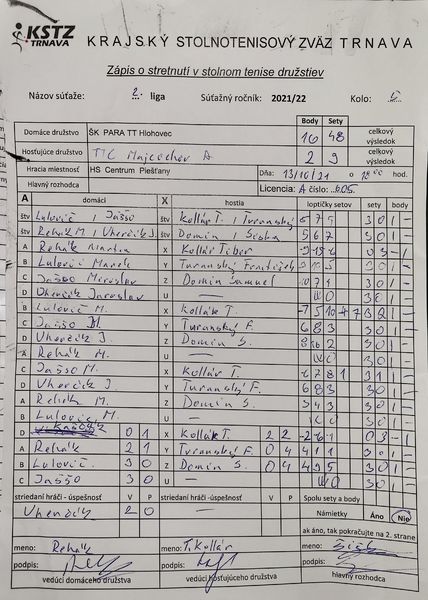 KSTZ
TRNAVA
KRAJSKÝ STOLNOTENISOVÝ ZVÄZ TRNAVA
Zápis o stretnutí v stolnom tenise družstiev
Názov súťaže: 2. liga Súťažný ročník: 2021/22 Kolo: 5
Body Sety
Domáce družstvo ŠK PARA TT Hlohovec 16 48 celkový výsledok
Hosťujúce družstvo TTC Majcichov A 2 9 celkový výsledok
Hracia miestnosť HS Centrum Piešťany Dňa: 13/10/21 o 18:00 hod.
Hlavný rozhodca Licencia A číslo:
A domáci X hostia loptičky setov sety body
štv Lulovič / Jaššo štv Kollár T. / Turanský 3 0 1 -
štv Rehák M. / Uherčík J. štv Domin / 5 6 7 3 0 1 -
A Rehák Martin X Kollár Tibor 0 3 - 1
B Lulovič Marek Y Turanský František 3 0 1 -
C Jaššo Miroslav Z Domin Samuel 3 0 1 -
D Uherčík Jaroslav U — WO 3 0 1 -
B Lulovič M. X Kollár T. 3 2 1 -
C Jaššo M. Y Turanský F. 6 8 3 3 0 1 -
D Uherčík J Z Domin S. 3 0 1 -
A Rehák M. U — WO 3 0 1 -
C Jaššo M. X Kollár T. 3 1 1 -
D Uherčík J. Y Turanský F. 6 8 3 3 0 1 -
A Rehák M. Z Domin S. 5 4 3 3 0 1 -
B Lulovič M. U — WO 3 0 1 -
D 0 1 X Kollár T. 2 2 -2 -6 -1 0 3 - 1
A Rehák 2 1 Y Turanský F. 0 4 4 1 1 3 0 1 -
B Lulovič 3 0 Z Domin S. 0 4 3 0 1 -
C Jaššo 3 0 U — WO 3 0 1 -
striedaní hráči - úspešnosť V P striedaní hráči - úspešnosť V P Spolu sety a body
Uherčík 2 0 Námietky Áno Nie
ak áno, tak pokračujte na 2. strane
meno: Rehák meno: T. Kollár meno:
podpis: podpis: podpis:
vedúci domáceho družstva vedúci hosťujúceho družstva hlavný rozhodca